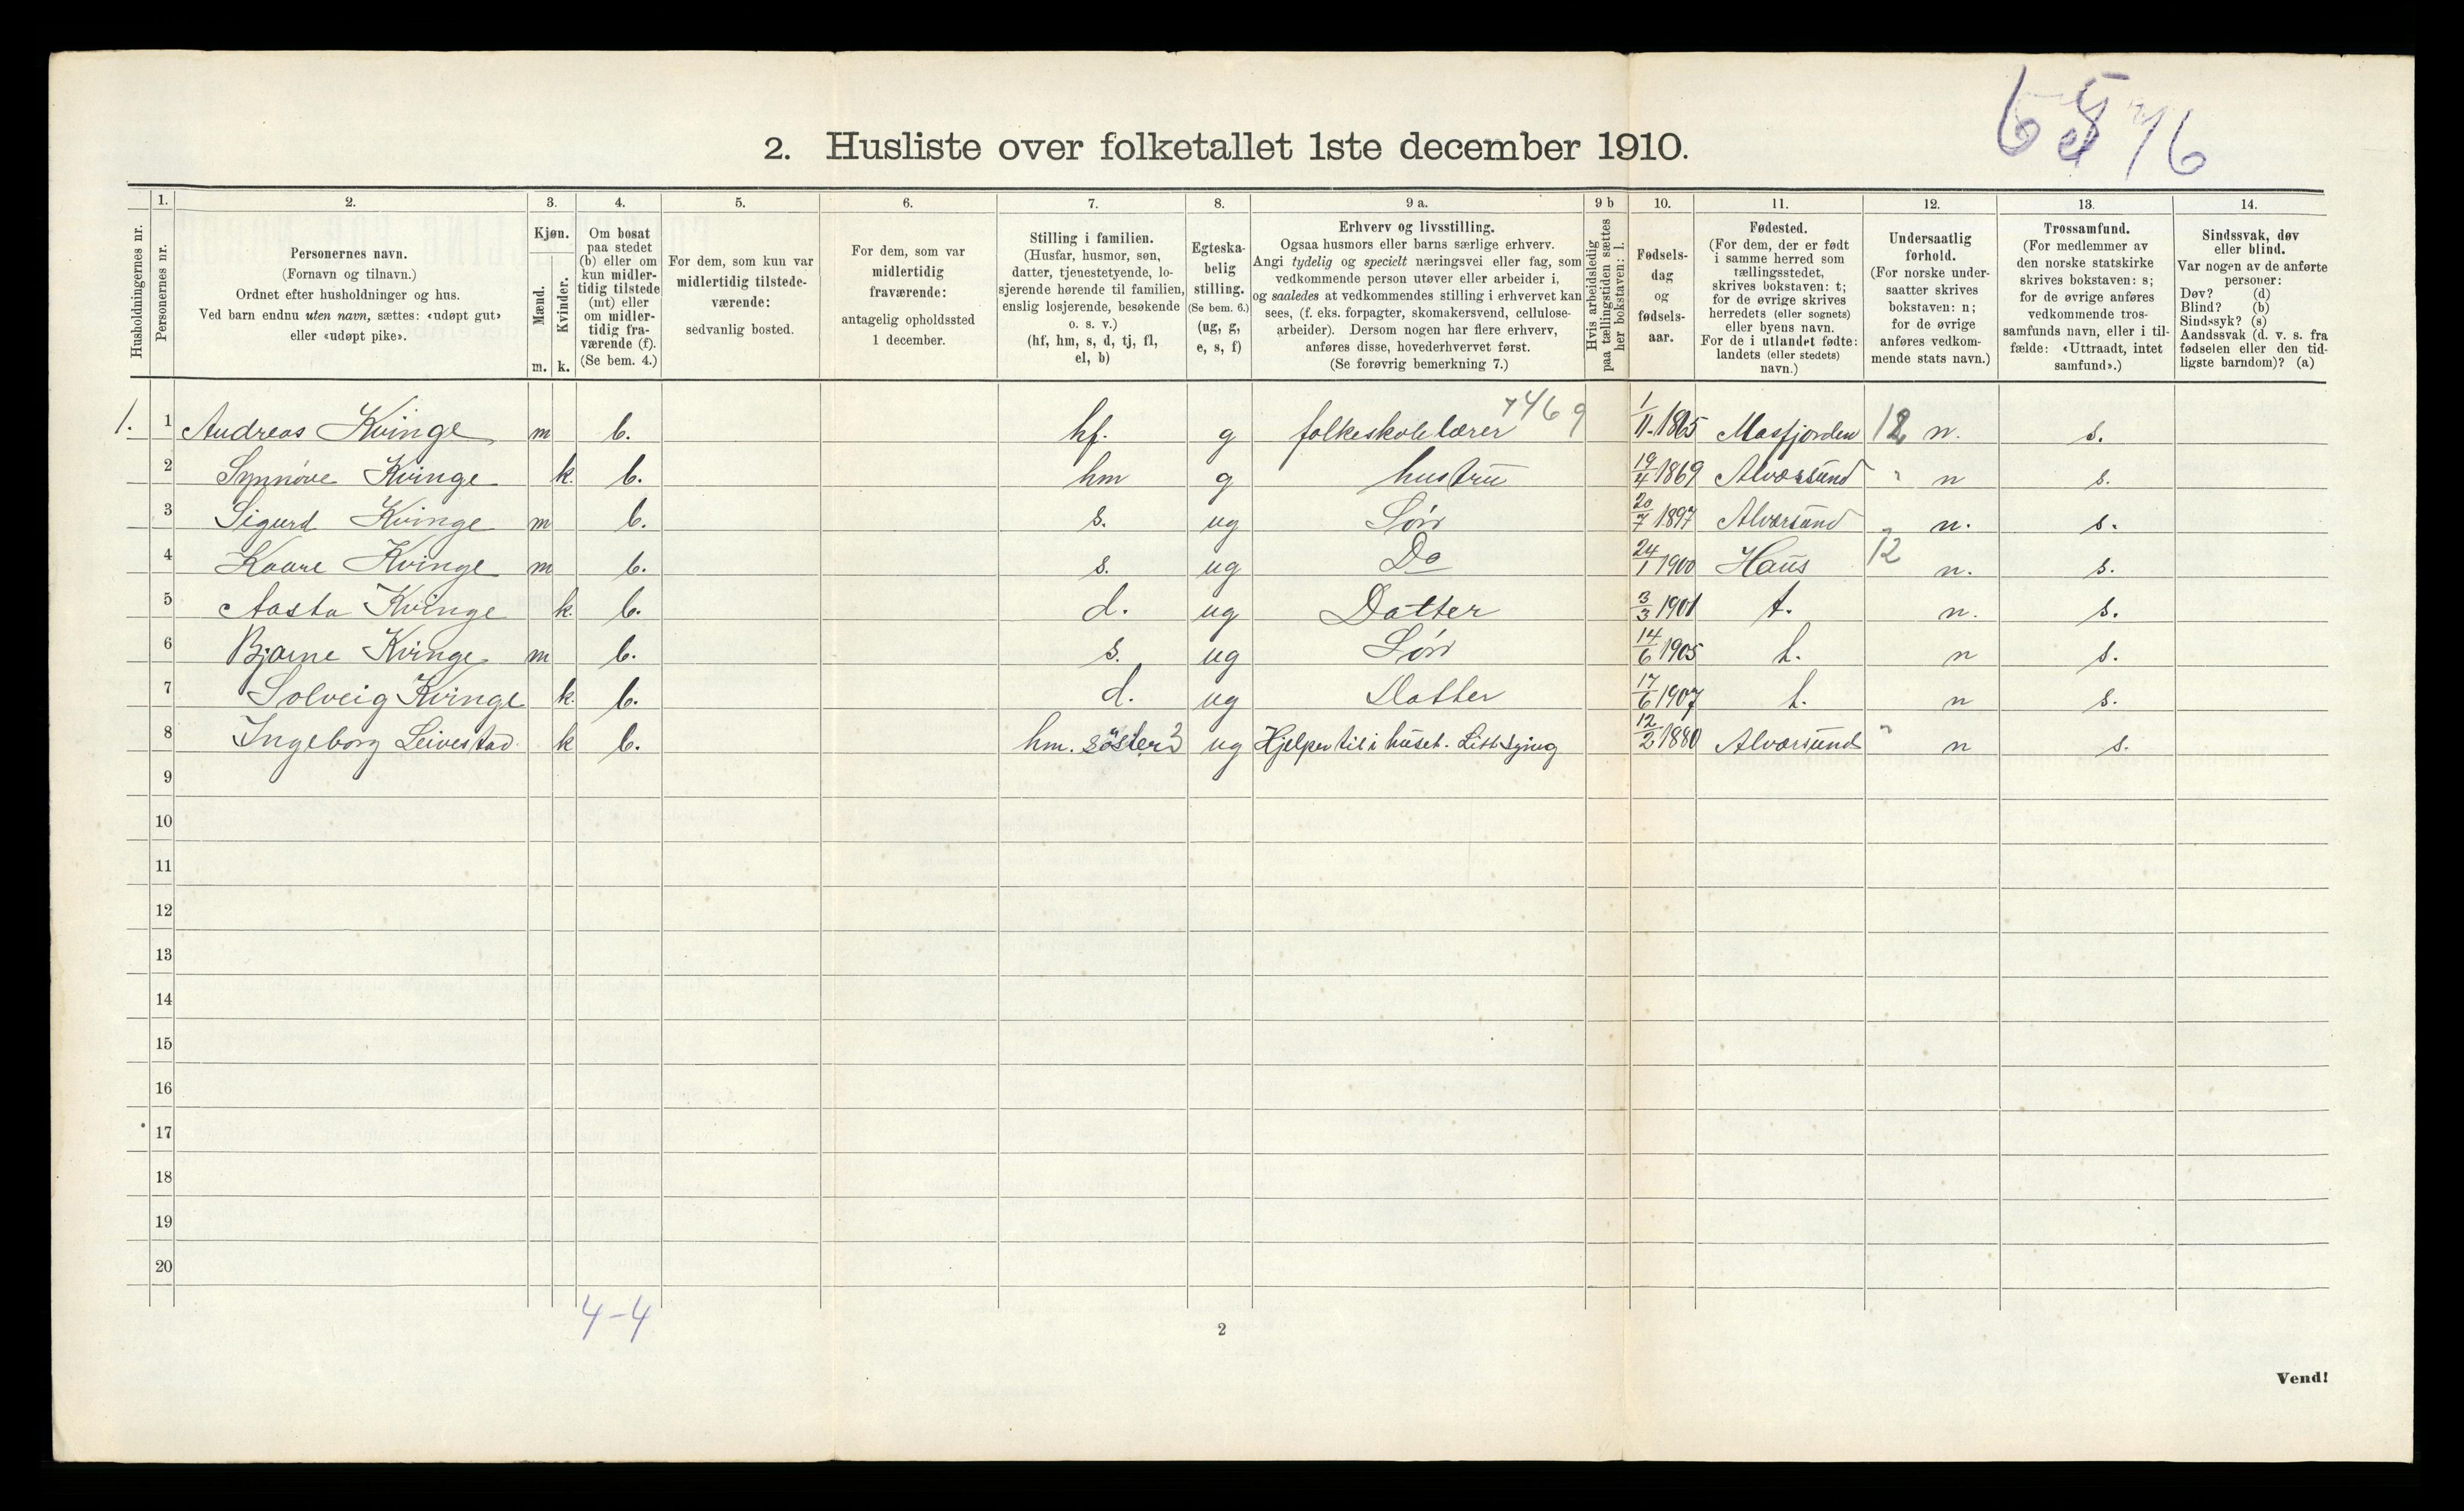 65 76
2. Husliste over folketallet 1ste december 1910.
Husholdningernes nr.
1. Personernes nr.
2. Personernes navn.
(Fornavn og tilnavn.)
Ordnet efter husholdninger og hus.
Ved barn endnu uten navn, sættes: «udøpt gut»
eller «udøpt pike».
3. Kjøn.
Mænd. Kvinder.
m. k.
4. Om bosat
paa stedet
(b) eller om
kun midler-
tidig tilstede
(mt) eller
om midler-
tidig fra-
værende (f).
(Se bem. 4.)
5. For dem, som kun var
midlertidig tilstede-
værende:
sedvanlig bosted.
6. For dem, som var
midlertidig
fraværende:
antagelig opholdssted
1 december.
7. Stilling i familien.
(Husfar, husmor, søn,
datter, tjenestetyende, lo-
sjerende hørende til familien,
enslig losjerende, besøkende
o. s. v.)
(hf, hm, s, d, tj, fl,
el, b)
8. Egteska-
belig
stilling.
(Se bem. 6.)
(ug, g,
e, s, f)
9 a. Erhverv og livsstilling.
Ogsaa husmors eller barns særlige erhverv.
Angi tydelig og specielt næringsvei eller fag, som
vedkommende person utøver eller arbeider i,
og saaledes at vedkommendes stilling i erhvervet kan
sees, (f. eks. forpagter, skomakersvend, cellulose-
arbeider). Dersom nogen har flere erhverv,
anføres disse, hovederhvervet først.
(Se forøvrig bemerkning 7.)
9 b Hvis arbeidsledig
paa tællingstiden sættes
her bokstaven: l.
10. Fødsels-
dag
og
fødsels-
aar.
11. Fødested.
(For dem, der er født
i samme herred som
tællingsstedet,
skrives bokstaven: t;
for de øvrige skrives
herredets (eller sognets)
eller byens navn.
For de i utlandet fødte:
landets (eller stedets)
navn.)
12. Undersaatlig
forhold.
(For norske under-
saatter skrives
bokstaven: n;
for de øvrige
anføres vedkom-
mende stats navn.)
13. Trossamfund.
(For medlemmer av
den norske statskirke
skrives bokstaven: s;
for de øvrige anføres
vedkommende tros-
samfunds navn, eller i til-
fælde: «Uttraadt, intet
samfund».)
14. Sindssvak, døv
eller blind.
Var nogen av de anførte
personer:
Døv? (d)
Blind? (b)
Sindssyk? (s)
Aandssvak (d. v. s. fra
fødselen eller den tid-
ligste barndom)? (a)
1. 1 Andreas Kvinge m b. hf. g folkeskolelærer 7469 1/11-1865 Masfjorden 12 n. s.
2 Synnöve Kvinge k. b. hm g hustru 19/4 1869 Alversund " n s.
3 Sigurd Kvinge m b. s. ug Sön 20/7 1897 Alversund " n. s.
4 Kaare Kvinge m b. s. ug Do 24/1 1900 Haus 12 n. s.
5 Aasta Kvinge k. b. d. ug Datter 3/3 1901 t. n. s.
6 Bjarne Kvinge m b. s. ug Sön 14/6 1905 t. n s.
7 Solveig Kvinge k. b. d. ug Datter 17/6 1907 t. n s.
8 Ingeborg Leivestad k b. hm. söster 3 ug Hjelper til i huset. Litt sying 12/2 1880 Alversund " n s.
9
10
11
12
13
14
15
16
17
18
19
20
4-4
2
Vend!